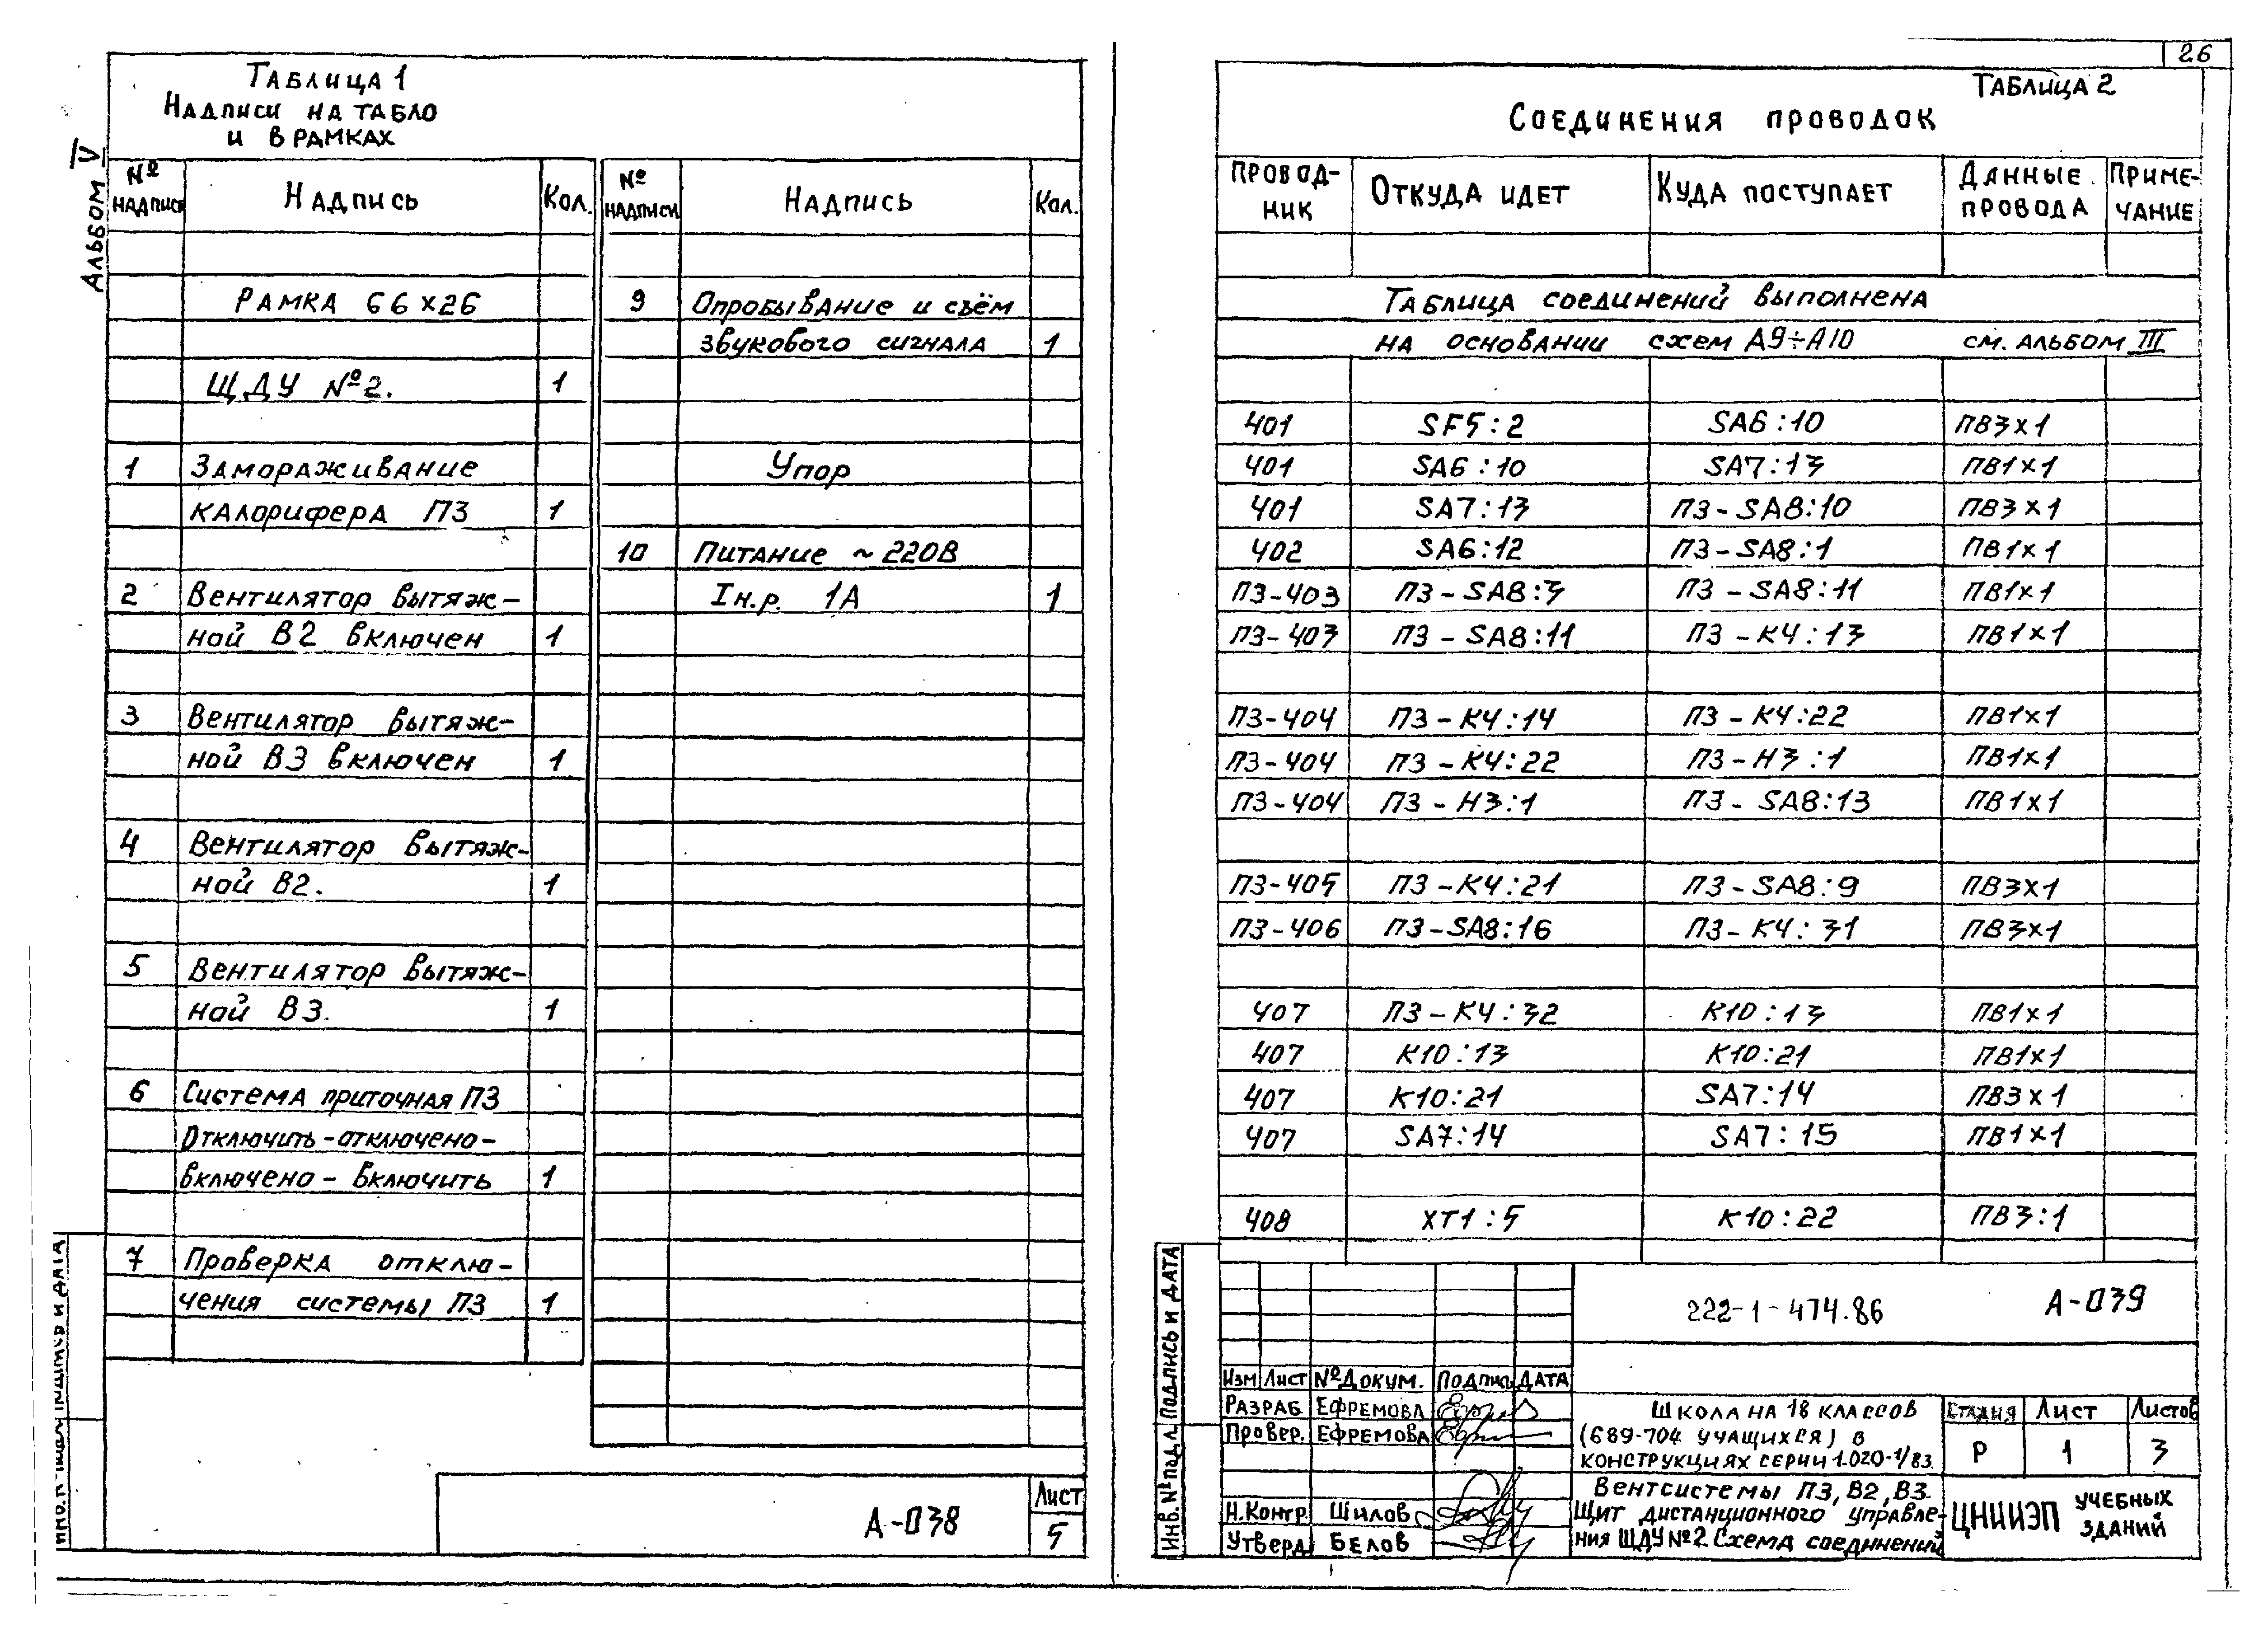 26
Альбом IV
Таблица 1
Надписи на табло
и в рамках
№ надписи Надпись Кол.
Рамка 66×26
ЩДУ №2. 1
1 Замораживание
калорифера П3 1
2 Вентилятор вытяж-
ной В2 включен 1
3 Вентилятор вытяж-
ной В3 включен 1
4 Вентилятор вытяж-
ной В2. 1
5 Вентилятор вытяж-
ной В3. 1
6 Система приточная П3
Отключить-отключено-
включено - включить 1
7 Проверка отклю-
чения системы П3 1
№ надписи Надпись Кол.
9 Опробывание и съём
звукового сигнала 1
Упор
10 Питание ~220В
Iн.р. 1А 1
А-038
Лист
5
Таблица 2
Соединения проводок
Провод-ник Откуда идет Куда поступает Данные провода Приме-чание
Таблица соединений выполнена
на основании схем А9÷А10 см. альбом III
401 SF5:2 SA6:10 ПВ3×1
401 SA6:10 SA7:13 ПВ1×1
401 SA7:13 П3-SA8:10 ПВ3×1
402 SA6:12 П3-SA8:1 ПВ1×1
П3-403 П3-SA8:3 П3-SA8:11 ПВ1×1
П3-403 П3-SA8:11 П3-К4:13 ПВ1×1
П3-404 П3-К4:14 П3-К4:22 ПВ1×1
П3-404 П3-К4:22 П3-Н3:1 ПВ1×1
П3-404 П3-Н3:1 П3-SA8:13 ПВ1×1
П3-405 П3-К4:21 П3-SA8:9 ПВ3×1
П3-406 П3-SA8:16 П3-К4:31 ПВ3×1
407 П3-К4:32 К10:13 ПВ1×1
407 К10:13 К10:21 ПВ1×1
407 К10:21 SA7:14 ПВ3×1
407 SA7:14 SA7:15 ПВ1×1
408 ХТ1:5 К10:22 ПВ3:1
222-1-474.86 А-039
Изм Лист №Докум. Подпись Дата
Разраб Ефремова
Провер. Ефремова
Н.Контр. Шилов
Утверд Белов
Школа на 18 классов
(689-704 учащихся) в
конструкциях серии 1.020-1/83.
Вентсистемы П3, В2, В3.
Щит дистанционного управле-
ния ЩДУ №2 Схема соединений
Стадия Лист Листов
Р 1 3
ЦНИИЭП учебных зданий
Инв.№подл. Подпись и дата